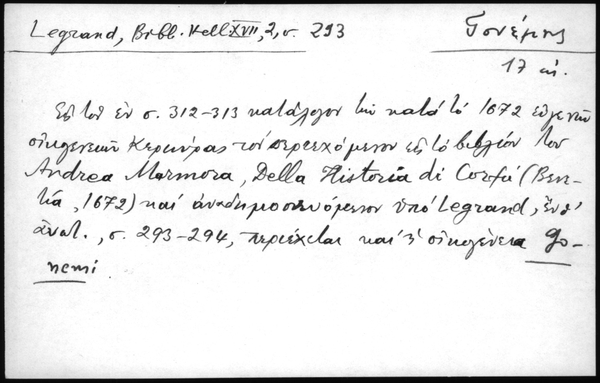 Legrand, Bibl. Hell. XVII, 2, σ. 293
Γονέμης
17 αἰ.
Εἰς τὸν ἐν σ. 312-313 κατάλογον τῶν κατὰ τὸ 1672 εὐγενῶν
οἰκογενειῶν Κερκύρας τὸν περιεχόμενον εἰς τὸ βιβλίον τοῦ
Andrea Marmora, Della Historia di Corfú (Βενε-
τία, 1672) καὶ ἀναδημοσιευόμενον ὑπὸ Legrand, ἔνθ'
ἀνωτ., σ. 293-294, περιέχεται καὶ ἡ οἰκογένεια Go-
nemi